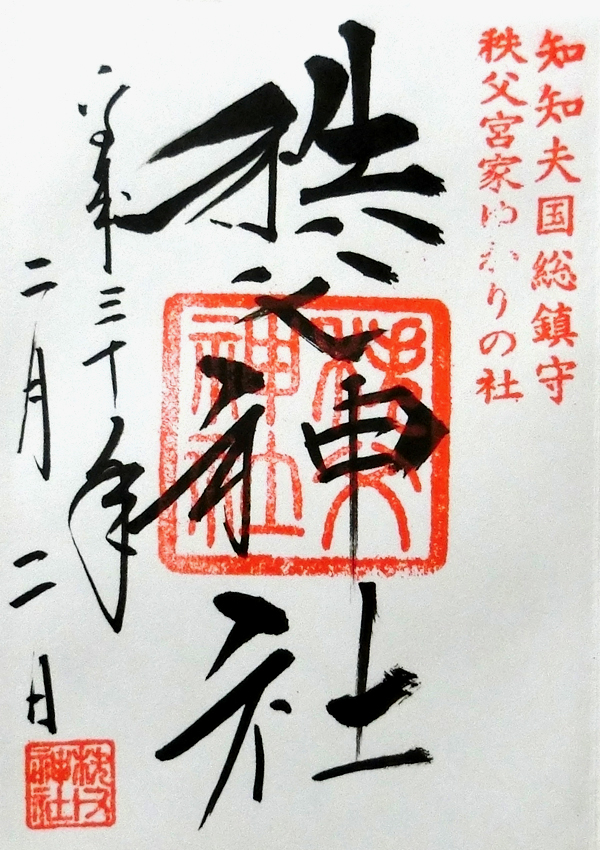 知知夫国総鎮守
秩父宮家ゆかりの社
秩父神社
秩父神社
平成三十年
二月二日
秩父神社